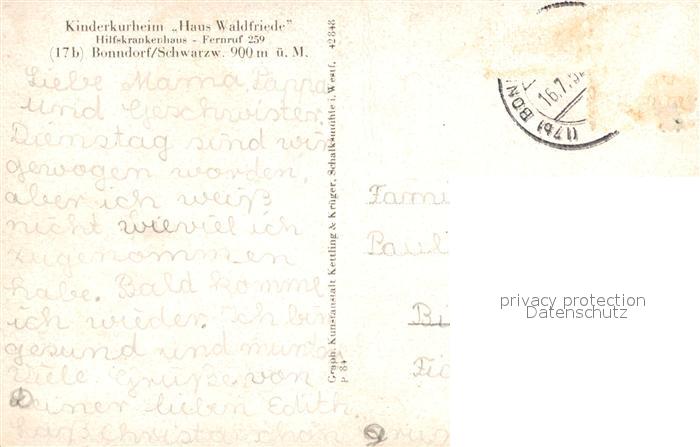 Kinderkurheim „Haus Waldfriede"
Hilfskrankenhaus - Fernruf 259
(17b) Bonndorf/Schwarzw. 900 m ü. M.
Liebe Mama, Pappa
und Geschwister.
Dienstag sind wir
gewogen worden,
aber ich weiß
nicht wieviel ich
zugenommen
habe. Bald komme
ich wieder. Ich bin
gesund und munter
Viele Grüße von
deiner lieben Edith.
Christa schön
Graph. Kunstanstalt Kettling & Krüger, Schalksmühle i. Westf. 42848
P 84
(17b) BONN
16.7.5
Fami
Paul
Bi
privacy protection
Datenschutz